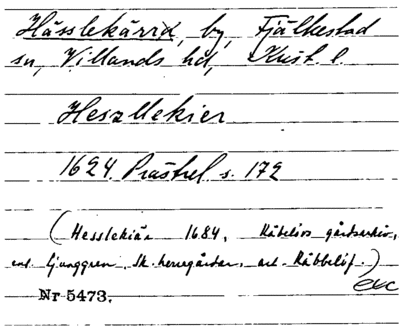 Hässlekärrd, by, Fjälkestad
sn, Villands hd, Krist. l.
Heszllekier
1624 Prästrel s. 172
(Hesslekiär 1684, gårdsarkiv,
enl. Ljunggren, Sk. herregårdar, art. Råbbelöf.)
Nr 5473.